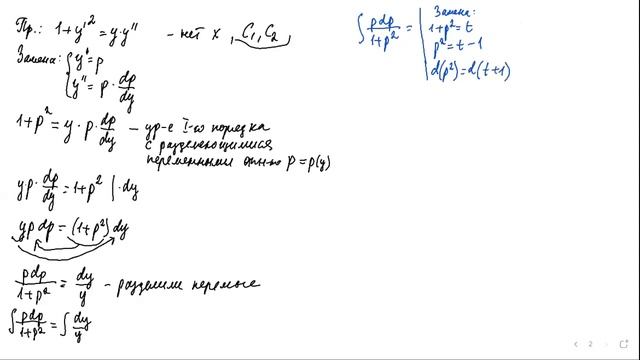 Пр.: 1+y'² = y·y'' – нет x, C₁, C₂
Замена: { y' = p
y'' = p · dp/dy
1+p² = y·p·dp/dy – ур-е I-го порядка
с разделяющимися
переменными отн-но p = p(y)
yp·dp/dy = 1+p² | · dy
yp dp = (1+p²) dy
pdp/1+p² = dy/y – разделили перемые
∫ pdp/1+p² = ∫ dy/y
∫ pdp/1+p² = | Замена:
1+p² = t
p² = t – 1
d(p²) = d(t+1)
2